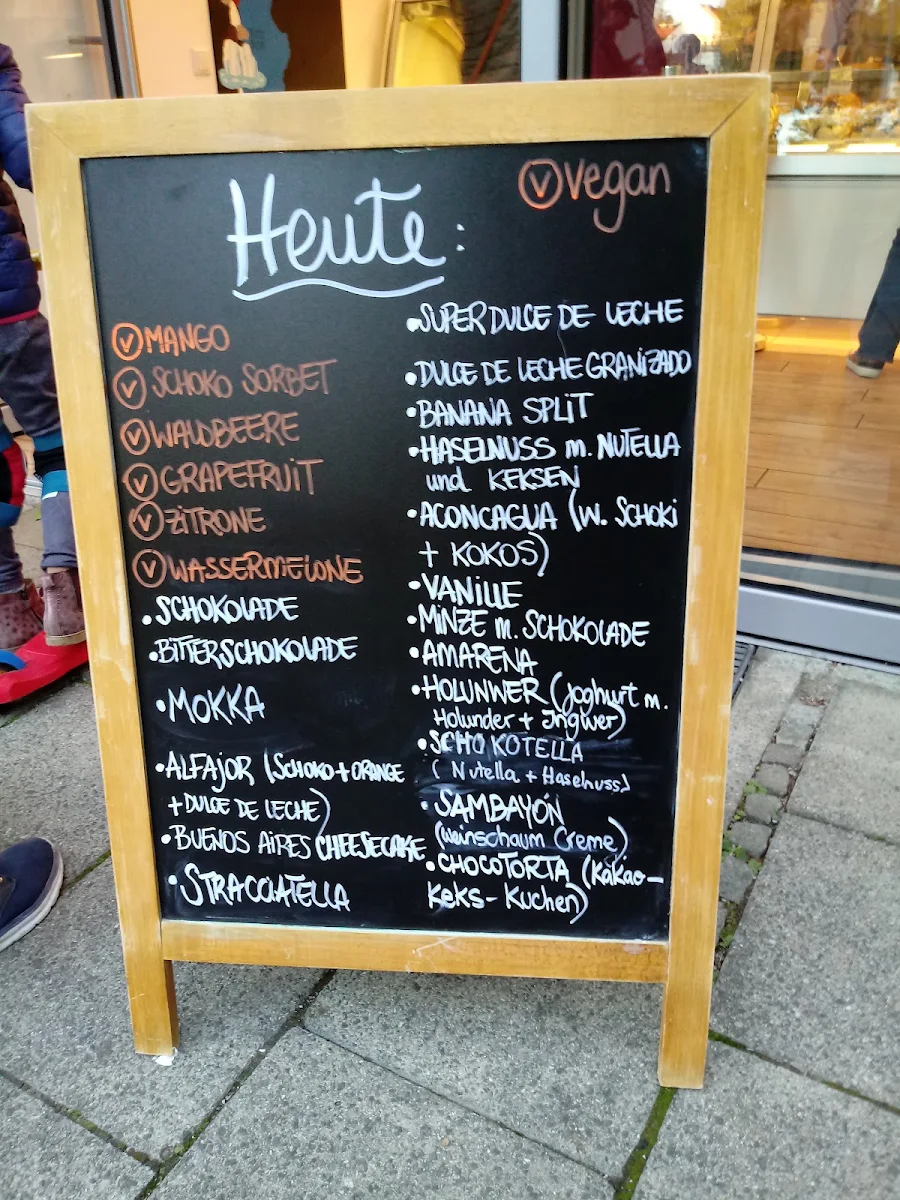 Heute:
Ⓥ vegan
Ⓥ MANGO
Ⓥ SCHOKO SORBET
Ⓥ WALDBEERE
Ⓥ GRAPEFRUIT
Ⓥ ZITRONE
Ⓥ WASSERMELONE
• SCHOKOLADE
• BITTERSCHOKOLADE
• MOKKA
• ALFAJOR (SCHOKO + ORANGE
+ DULCE DE LECHE)
• BUENOS AIRES CHEESECAKE
• STRACCIATELLA
• SUPER DULCE DE LECHE
• DULCE DE LECHE GRANIZADO
• BANANA SPLIT
• HASELNUSS m. NUTELLA
und KEKSEN
• ACONCAGUA (W. SCHOKI
+ KOKOS)
• VANILLE
• MINZE m. SCHOKOLADE
• AMARENA
• HOLUNWER (Joghurt m.
Holunder + Ingwer)
• SCHOKOTELLA
(Nutella + Haselnuss)
• SAMBAYÓN
(Weinschaum Creme)
• CHOCOTORTA (Kakao-
Keks-Kuchen)